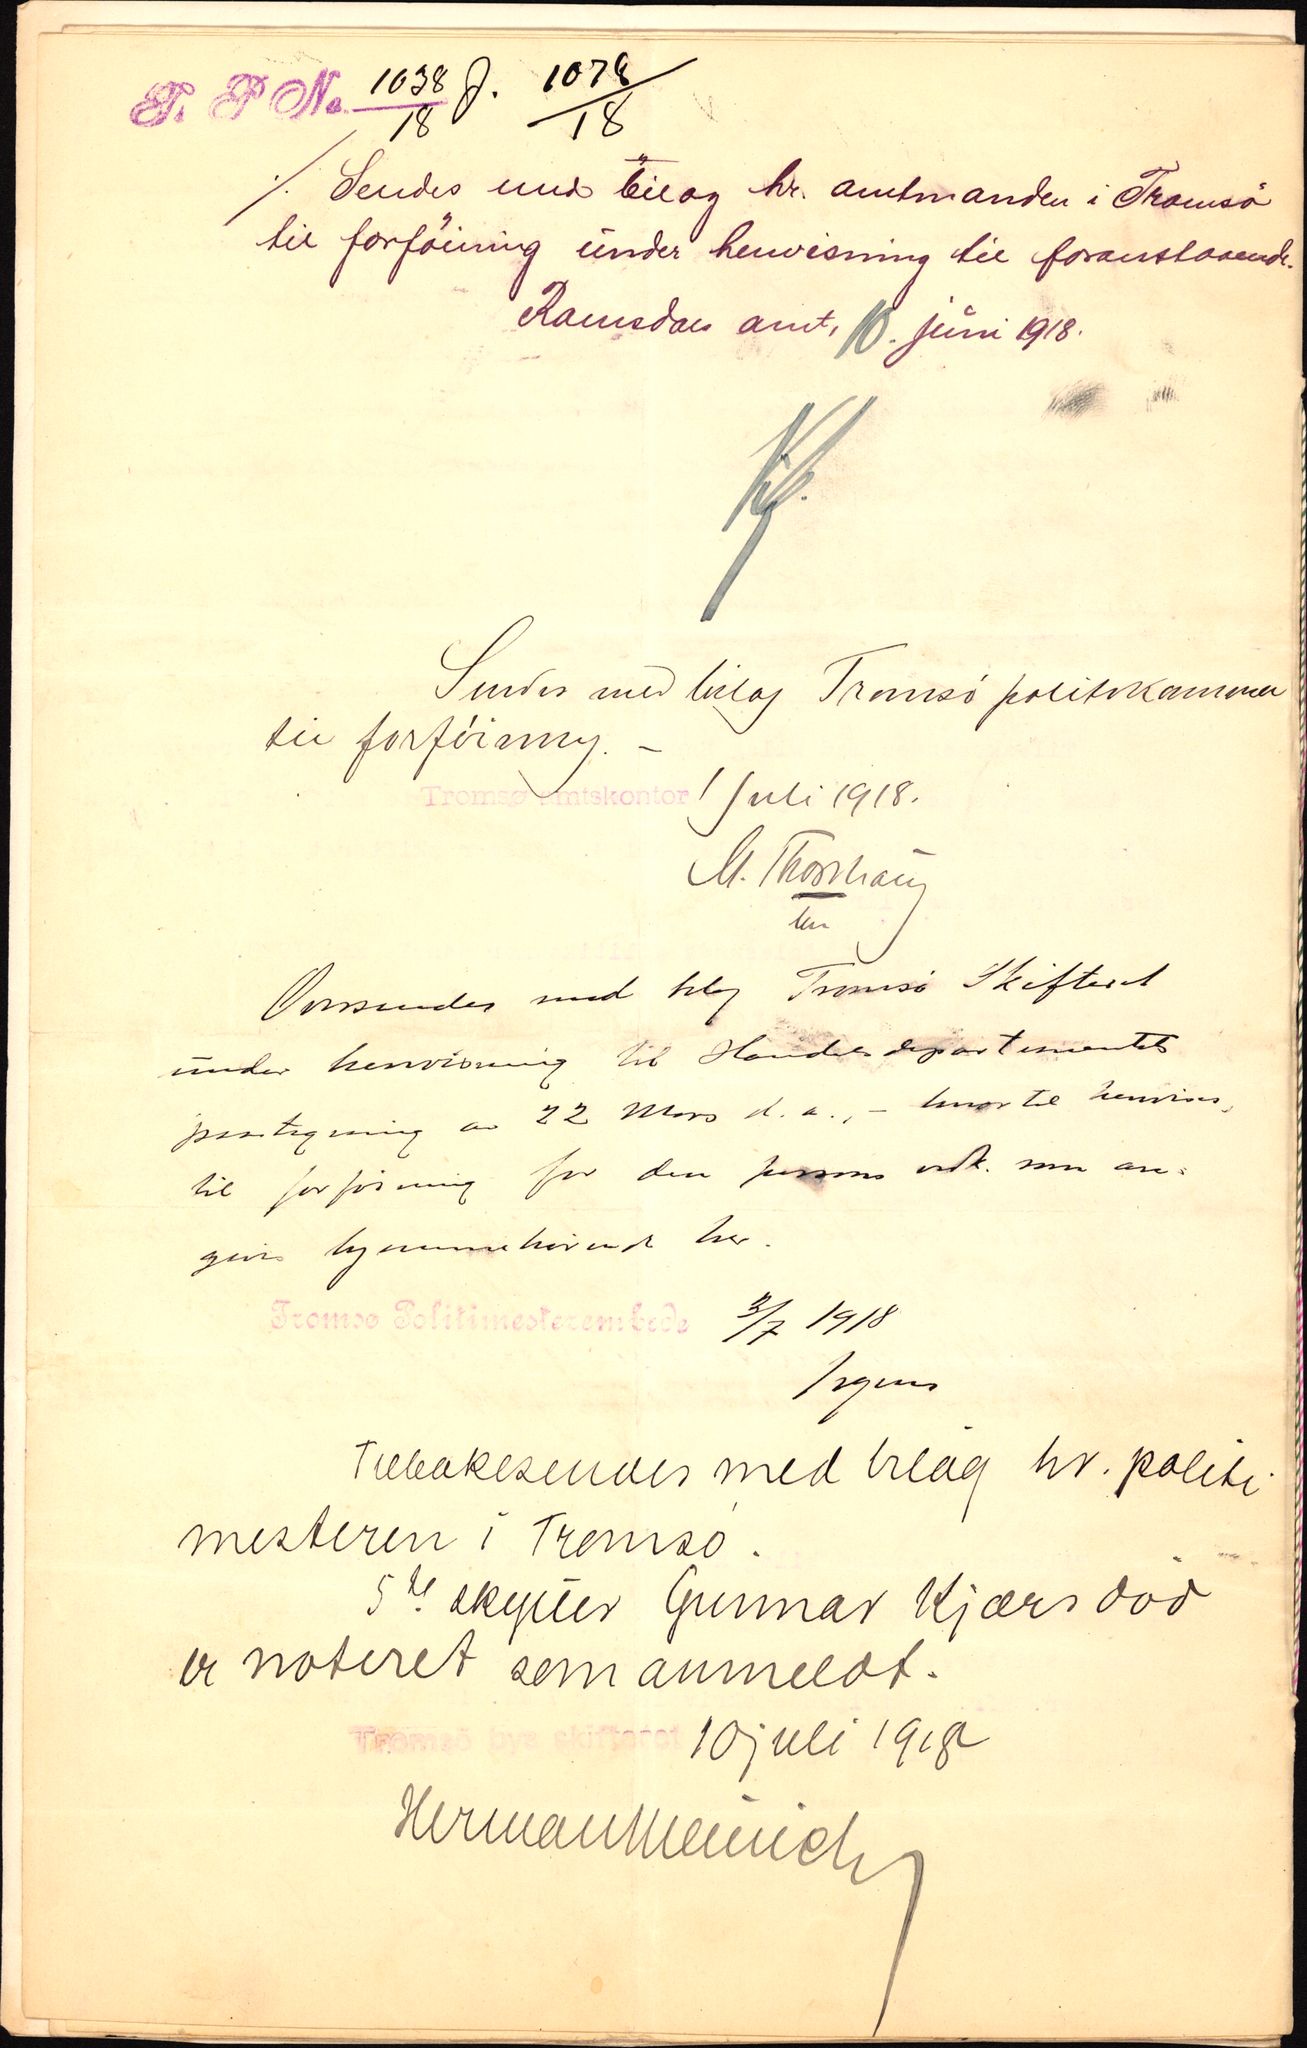 T. P. No. 1038/18 J. 1078/18
·/. Sendes med bilag hr. amtmanden i Tromsö
til forföining under henvisning til foranstaaende.
Romsdals amt, 10. juni 1918.
Sendes med bilag Tromsø politikammer
til forföining. –
Tromsø amtskontor 1 juli 1918.
M. Thorshaug
Oversendes med bilag Tromsø Skifteret
under henvisning til Handelsdepartementets
paategning av 22 Mars d. a., – hvortil henvises,
til forføining for den persons vedk. som an-
gives hjemmehørende her.
Tromsø Politimesterembede 3/7 1918
Irgens
Tilbakesendes med bilag hr. politi-
mesteren i Tromsø.
5te skytter Gunnar Kjærs död
er noteret som anmeldt.
Tromsö bys skifteret 10 juli 1918
Herman Meinich